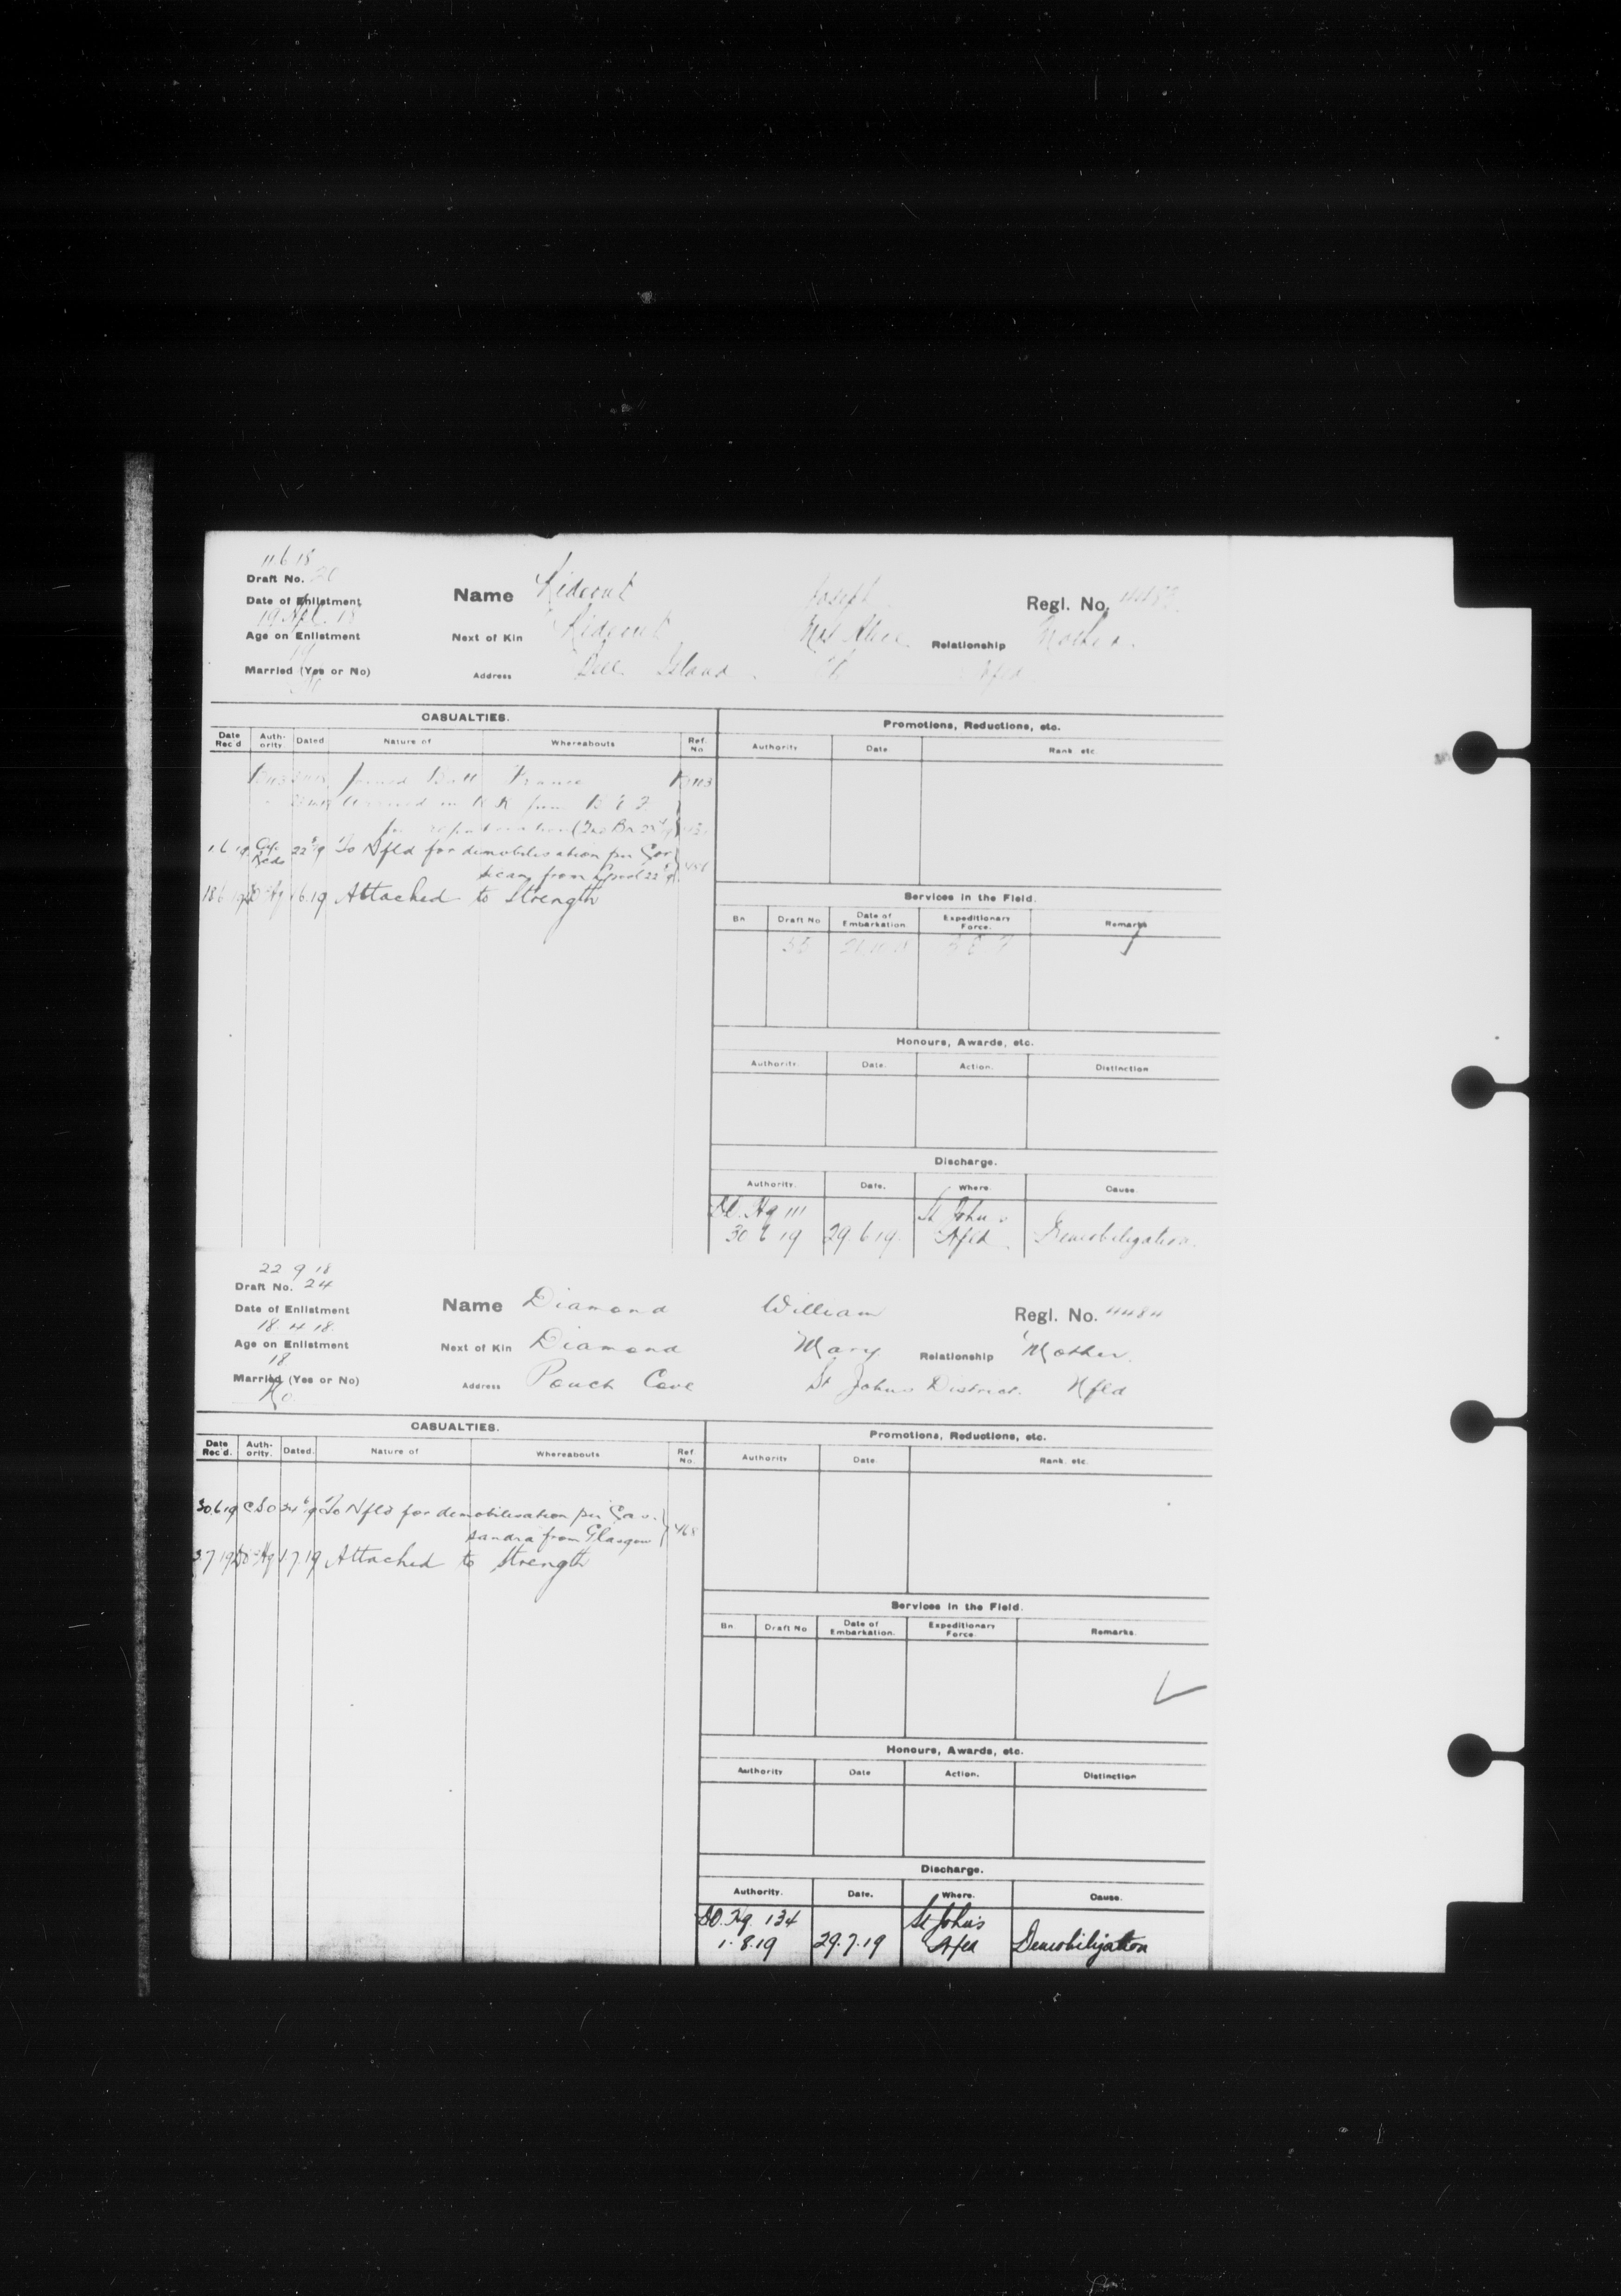 11.6.18
Draft No. 20
Name Rideout Joseph Regl. No.
Date of Enlistment
19 Apl. 18
Age on Enlistment
Next of Kin Rideout Mrs Alice Relationship Mother.
Married (Yes or No)
No
Address Bell Island Nfld
CASUALTIES.
Promotions, Reductions, etc.
Date Rec'd Auth-ority. Dated. Nature of Whereabouts Ref. No
Authority Date. Rank. etc.
Joined Batt France
Arrived in U.K from B.E.F.
for repatriation (2nd Bn
1.6.19 Recds 22 5/19 To Nfld for demobilisation per Cor
sican from
18.6.19 DO Hq 1.6.19 Attached to Strength
Services in the Field.
Bn Draft No Date of Embarkation. Expeditionary Force. Remarks
B E F
Honours, Awards, etc.
Authority. Date. Action. Distinction
Discharge.
Authority. Date. Where. Cause
DO. Hq 111 St John's
30 6 19 29.6.19. Nfld. Demobilization.
22 9 18
Draft No. 24
Name Diamond William Regl. No. 4484
Date of Enlistment
18.4.18.
Age on Enlistment
18
Next of Kin Diamond Mary Relationship Mother.
Married (Yes or No)
No.
Address Pouch Cove St Johns District. Nfld
CASUALTIES.
Promotions, Reductions, etc.
Date Rec'd. Auth-ority. Dated. Nature of Whereabouts Ref. No.
Authority Date. Rank. etc.
30.6.19 CSO 24 6/19 To Nfld for demobilisation per Cas-
sandra from Glasgow 468
3.7.19 DO Hq 1.7.19 Attached to Strength
Services in the Field.
Bn. Draft No Date of Embarkation. Expeditionary Force. Remarks.
Honours, Awards, etc.
Authority Date Action. Distinction
Discharge.
Authority. Date. Where. Cause.
DO. Hq. 134 St John's
1.8.19 29.7.19 Nfld Demobilization